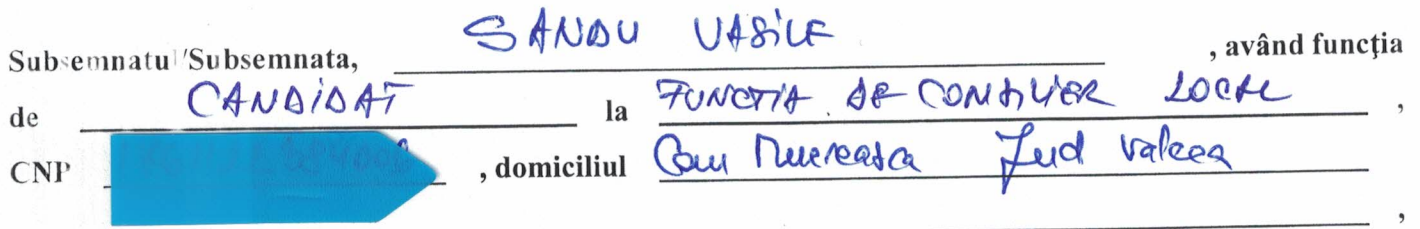 Subsemnatul/Subsemnata, SANDU VASILE, având funcţia
de CANDIDAT la FUNCTIA DE CONSILIER LOCAL,
CNP , domiciliul Com Muereasca Jud Valcea
,